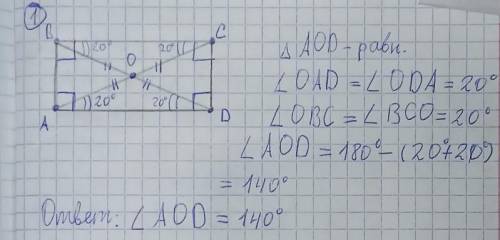 1
B
20°
20°
C
O
20°
20°
A
D
△ AOD - равн.
∠OAD = ∠ODA = 20°
∠OBC = ∠BCO = 20°
∠AOD = 180° - (20°+20°)
= 140°
Ответ: ∠AOD = 140°